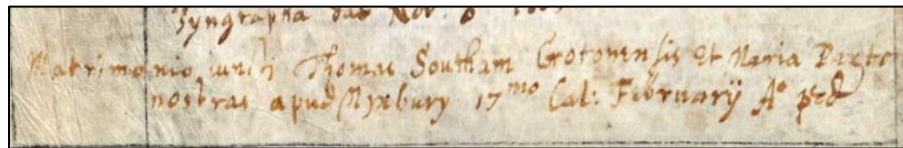 Syngrapha dat Nov. 8
Matrimonio iuncti Thomas Southam Grotonensis et Maria Parte
nostras apud Nyxbury 17mo Cal: Februarij Ao pred